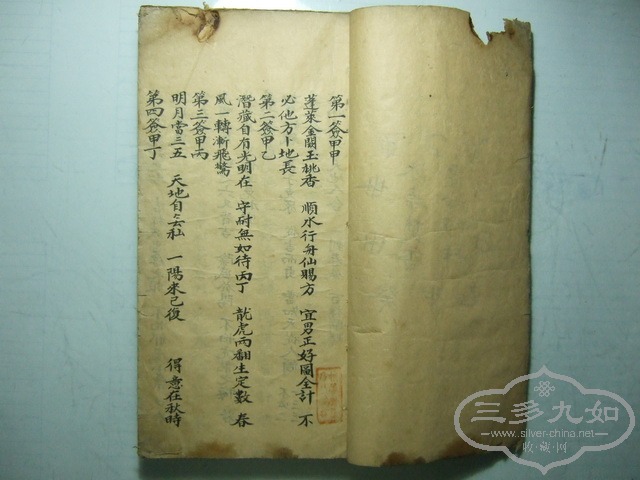 第一簽甲甲
蓬萊金闕玉桃香 順水行舟仙賜方 宜男正好圖全計 不
必他方卜地長
第二簽甲乙
潛藏自有光明在 守耐無如待丙丁 龍虎兩翻生定數 春
風一轉漸飛驚
第三簽甲丙
明月當三五 天地自去私 一陽來已復 得意在秋時
第四簽甲丁
三多九如
www.silver-china.net
收·藏·网